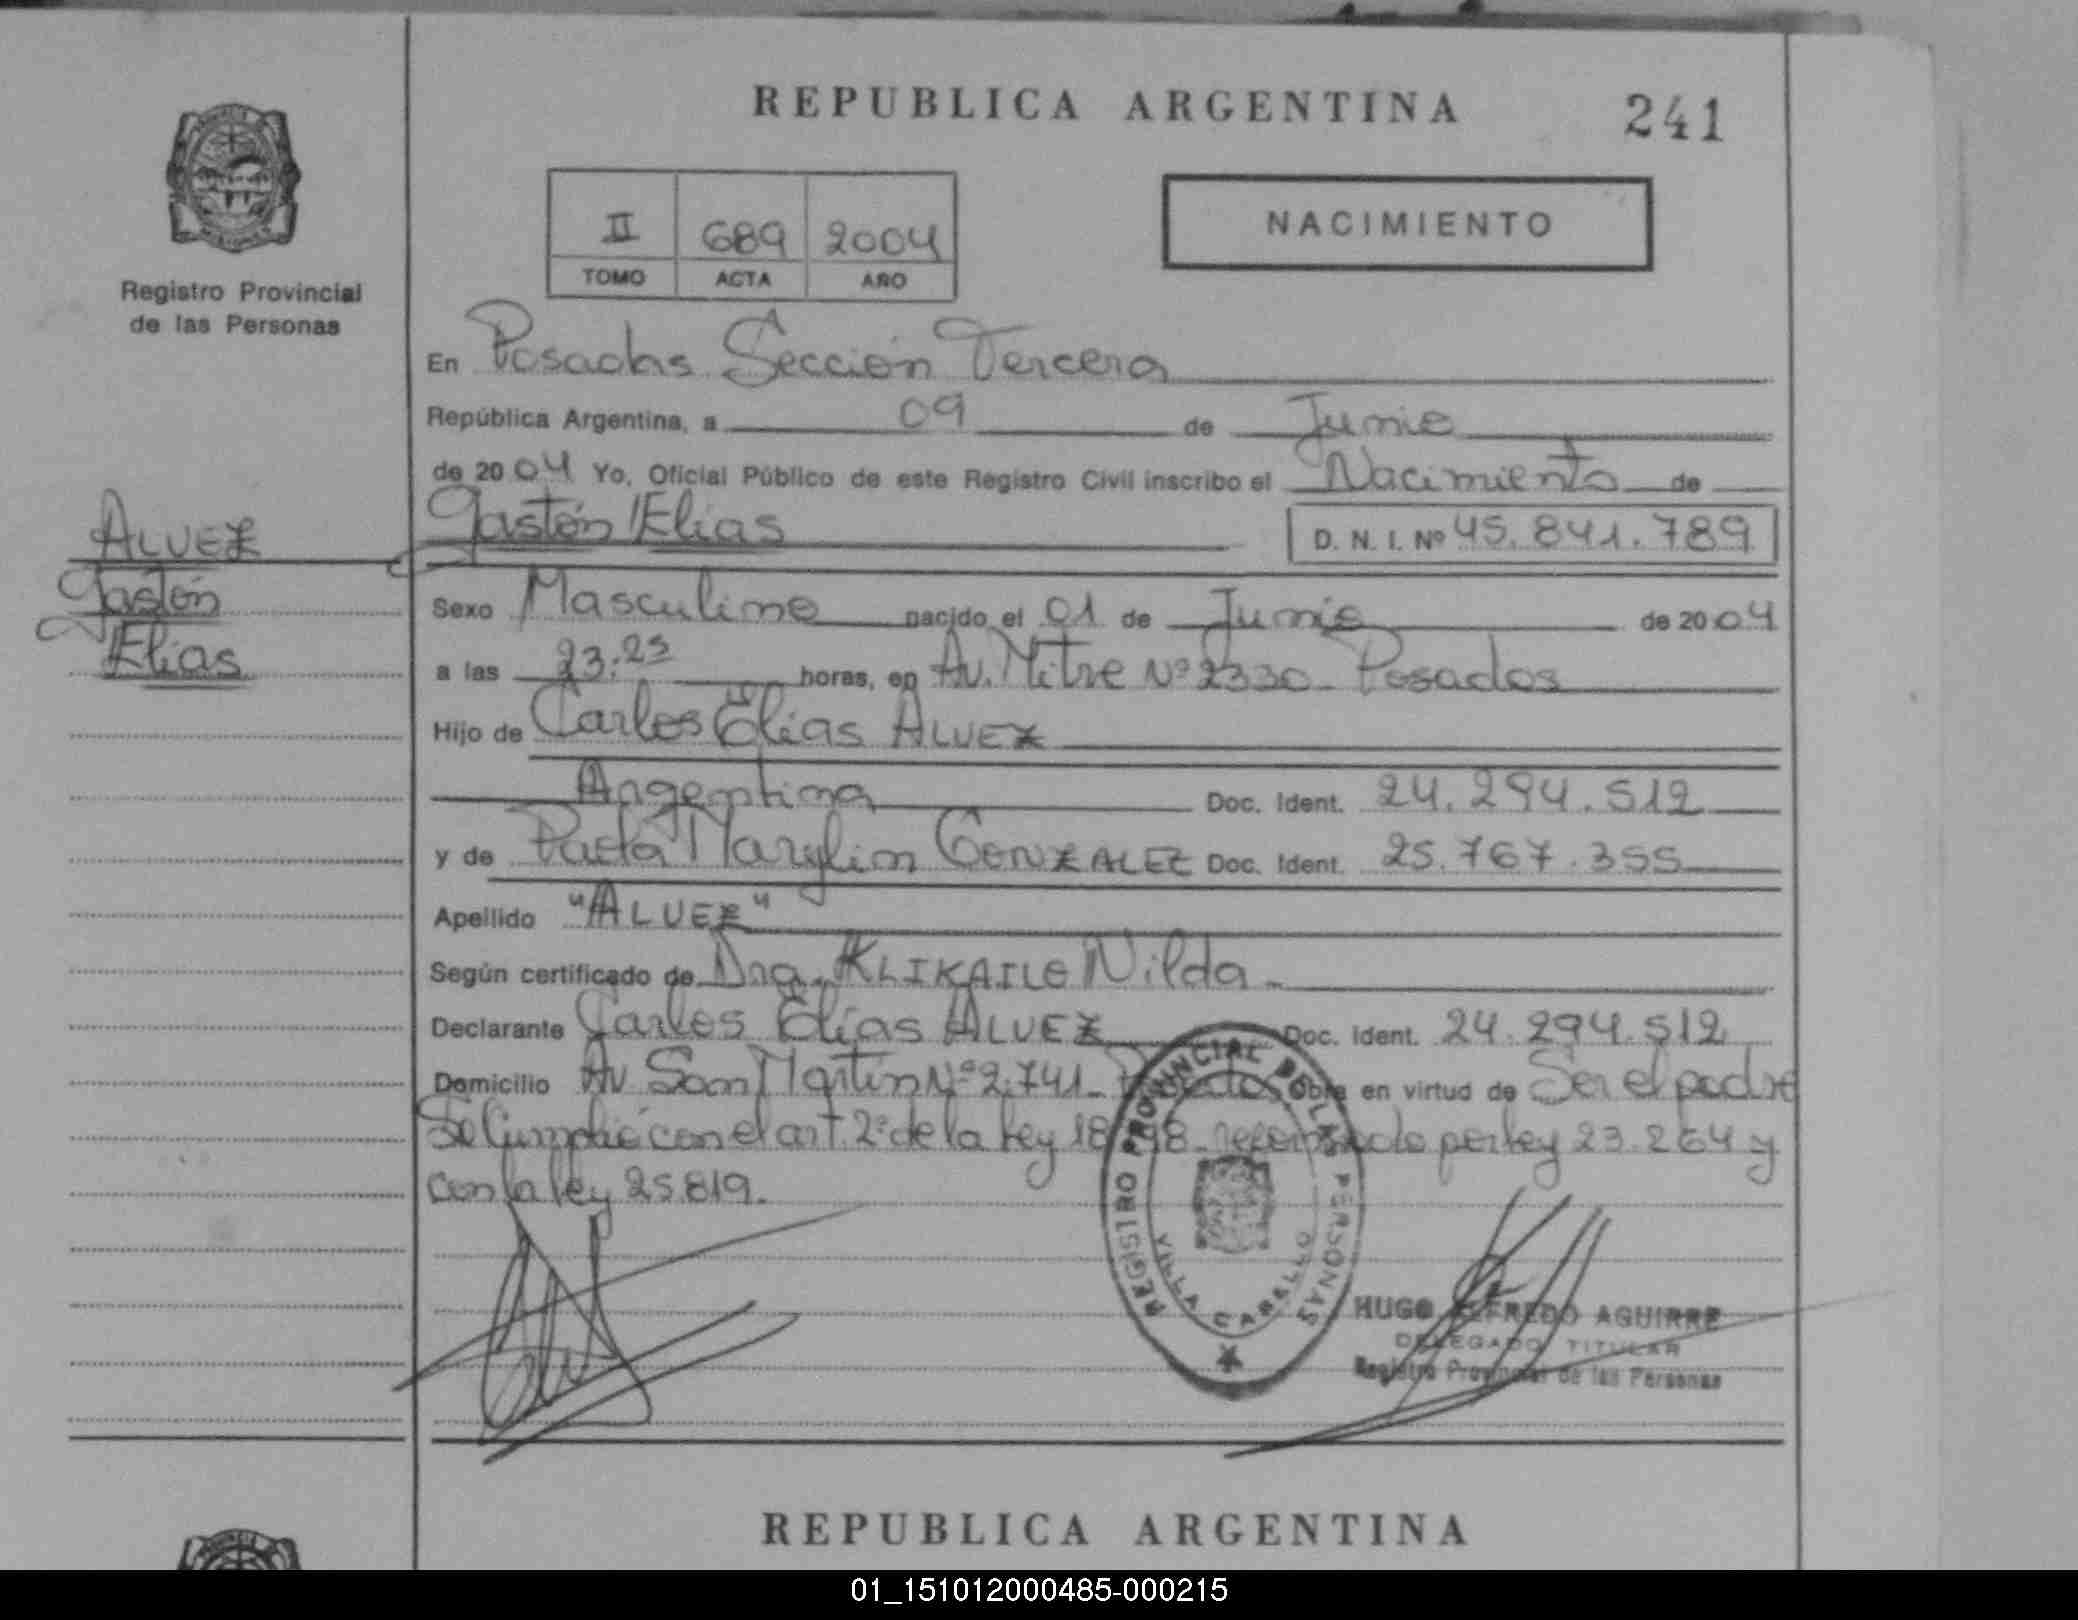 REPUBLICA ARGENTINA
241
II 689 2004
TOMO ACTA AÑO
NACIMIENTO
Registro Provincial
de las Personas
En Posadas Sección Tercera
República Argentina, a 09 de Junio
de 2004 Yo, Oficial Público de este Registro Civil inscribo el Nacimiento de
Gastón Elías
D. N. I. Nº 45.841.789
ALVEZ
Gastón
Elías
Sexo Masculino nacido el 01 de Junio de 2004
a las 23:25 horas, en Av. Mitre Nº 2330- Posadas
Hijo de Carlos Elías ALVEZ
Argentina Doc. Ident. 24.294.512
y de Paola Marylin GONZALEZ Doc. Ident. 25.767.355
Apellido "ALVEZ"
Según certificado de Dra. Nilda-
Declarante Carlos Elías ALVEZ Doc. Ident. 24.294.512
Domicilio Av San Martín Nº 2.741- Posadas Obra en virtud de Ser el padre
Se Cumplió con el art. 2º de la ley reformado por ley 23.264 y
con la ley 25.819.
REGISTRO PROVINCIAL DE LAS PERSONAS
VILLA CABELLO
HUGO ALFREDO AGUIRRE
DELEGADO TITULAR
Registro Provincial de las Personas
REPUBLICA ARGENTINA
01_151012000485-000215